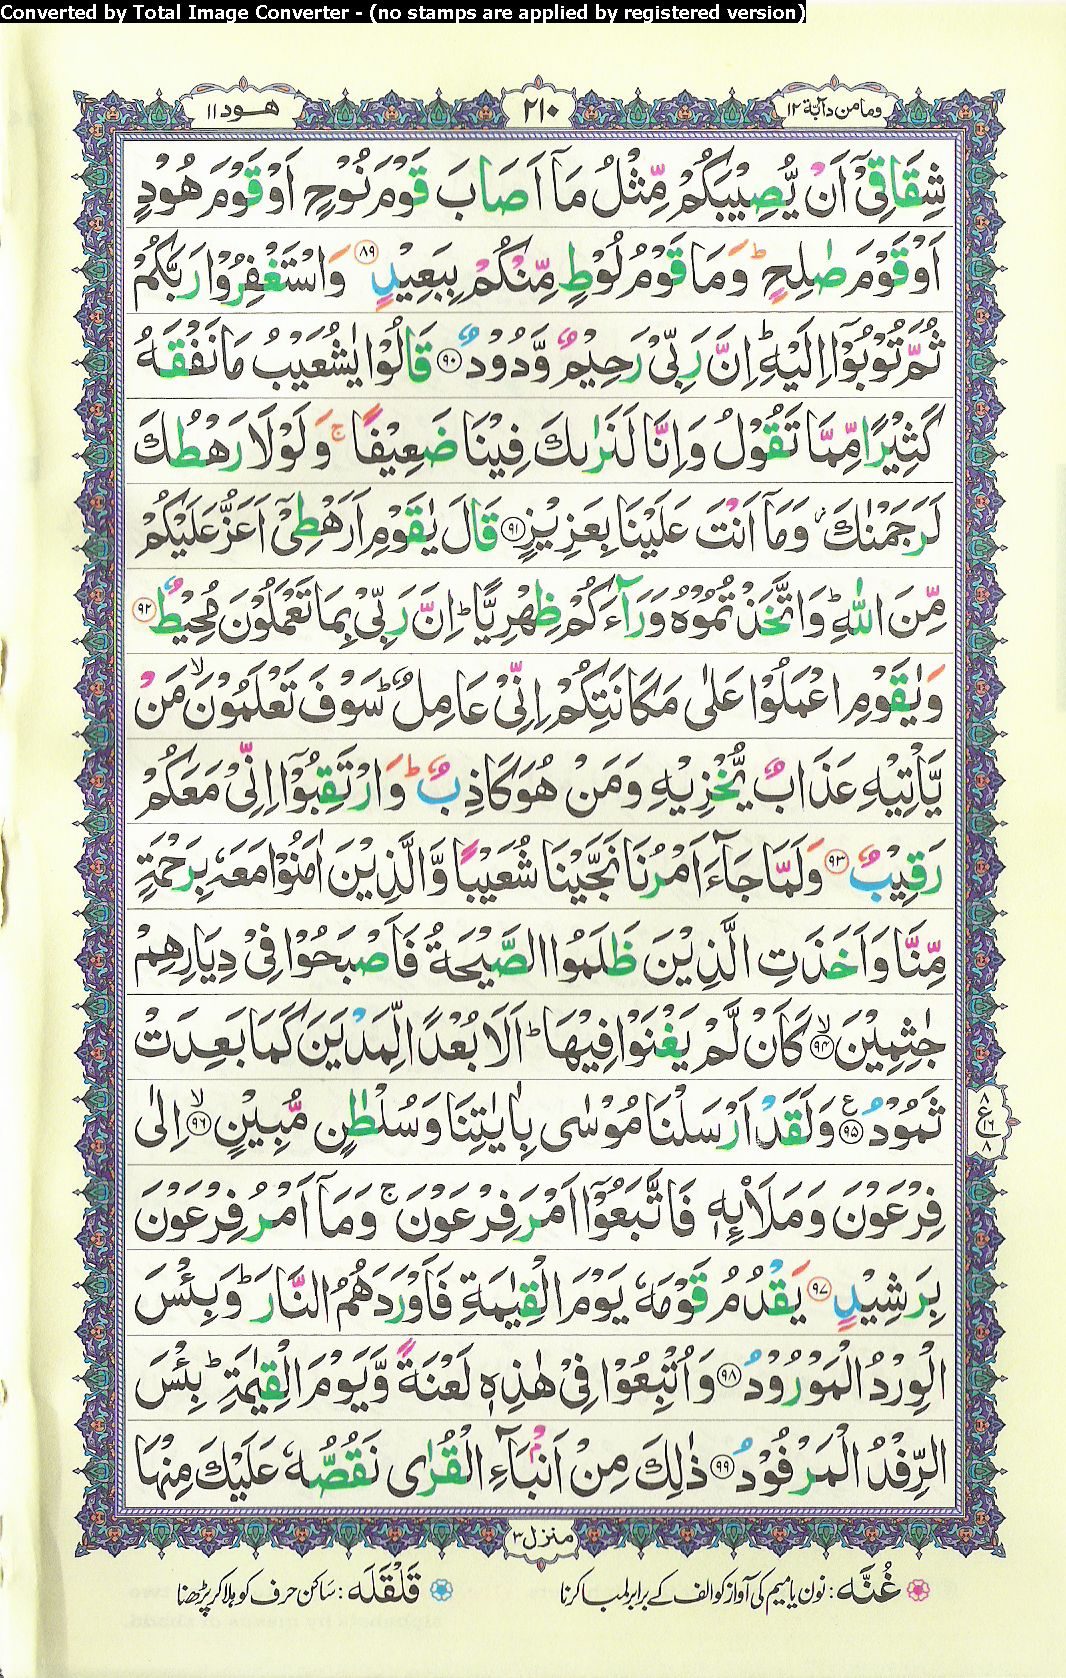 Converted by Total Image Converter - (no stamps are applied by registered version)
وما من دآبّة ١٢
٢١٠
هود ١١
شِقَاقِيْۤ اَنْ يُّصِيْبَكُمْ مِّثْلُ مَاۤ اَصَابَ قَوْمَ نُوْحٍ اَوْ قَوْمَ هُوْدٍ
اَوْ قَوْمَ صٰلِحٍ ؕ وَمَا قَوْمُ لُوْطٍ مِّنْكُمْ بِبَعِيْدٍ ۸۹ وَاسْتَغْفِرُوْا رَبَّكُمْ
ثُمَّ تُوْبُوْۤا اِلَيْهِ ؕ اِنَّ رَبِّيْ رَحِيْمٌ وَّدُوْدٌ ۹۰ قَالُوْا يٰشُعَيْبُ مَا نَفْقَهُ
كَثِيْرًا مِّمَّا تَقُوْلُ وَاِنَّا لَنَرٰىكَ فِيْنَا ضَعِيْفًا ۚ وَلَوْلَا رَهْطُكَ
لَرَجَمْنٰكَ ؗ وَمَاۤ اَنْتَ عَلَيْنَا بِعَزِيْزٍ ۹۱ قَالَ يٰقَوْمِ اَرَهْطِيْۤ اَعَزُّ عَلَيْكُمْ
مِّنَ اللّٰهِ ؕ وَاتَّخَذْتُمُوْهُ وَرَآءَكُمْ ظِهْرِيًّا ؕ اِنَّ رَبِّيْ بِمَا تَعْمَلُوْنَ مُحِيْطٌ ۹۲
وَيٰقَوْمِ اعْمَلُوْا عَلٰى مَكَانَتِكُمْ اِنِّيْ عَامِلٌ ؕ سَوْفَ تَعْلَمُوْنَ ۙ مَنْ
يَّاْتِيْهِ عَذَابٌ يُّخْزِيْهِ وَمَنْ هُوَ كَاذِبٌ ؕ وَارْتَقِبُوْۤا اِنِّيْ مَعَكُمْ
رَقِيْبٌ ۹۳ وَلَمَّا جَآءَ اَمْرُنَا نَجَّيْنَا شُعَيْبًا وَّالَّذِيْنَ اٰمَنُوْا مَعَهٗ بِرَحْمَةٍ
مِّنَّا وَاَخَذَتِ الَّذِيْنَ ظَلَمُوا الصَّيْحَةُ فَاَصْبَحُوْا فِيْ دِيَارِهِمْ
جٰثِمِيْنَ ۙ ۹۴ كَاَنْ لَّمْ يَغْنَوْا فِيْهَا ؕ اَلَا بُعْدًا لِّمَدْيَنَ كَمَا بَعِدَتْ
ثَمُوْدُ ۹۵ ع وَلَقَدْ اَرْسَلْنَا مُوْسٰى بِاٰيٰتِنَا وَسُلْطٰنٍ مُّبِيْنٍ ۙ ۹۶ اِلٰى
۸ ع ۱۲ ۸
فِرْعَوْنَ وَمَلَاۡئِهٖ فَاتَّبَعُوْۤا اَمْرَ فِرْعَوْنَ ۚ وَمَاۤ اَمْرُ فِرْعَوْنَ
بِرَشِيْدٍ ۹۷ يَقْدُمُ قَوْمَهٗ يَوْمَ الْقِيٰمَةِ فَاَوْرَدَهُمُ النَّارَ ؕ وَبِئْسَ
الْوِرْدُ الْمَوْرُوْدُ ۹۸ وَاُتْبِعُوْا فِيْ هٰذِهٖ لَعْنَةً وَّيَوْمَ الْقِيٰمَةِ ؕ بِئْسَ
الرِّفْدُ الْمَرْفُوْدُ ۹۹ ذٰلِكَ مِنْ اَنْۢبَآءِ الْقُرٰى نَقُصُّهٗ عَلَيْكَ مِنْهَا
منزل ٣
غُنَّه : نون یا میم کی آواز کو الف کے برابر لمبا کرنا
قَلْقَلَه : ساکن حرف کو ہلا کر پڑھنا